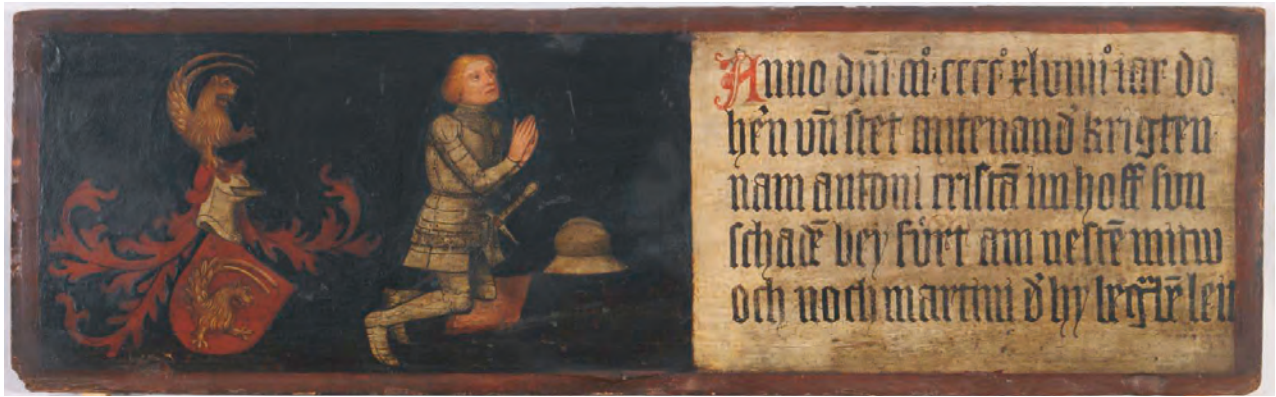 Anno dm̄ mͦ cccc̊ xlviiii̊ iar do
hēn vn̄ stet antenand̄ krigten
nam antoni cristā im hoff sun
schadē bey fürt am nestē mitw
och noch martini d' hy leit